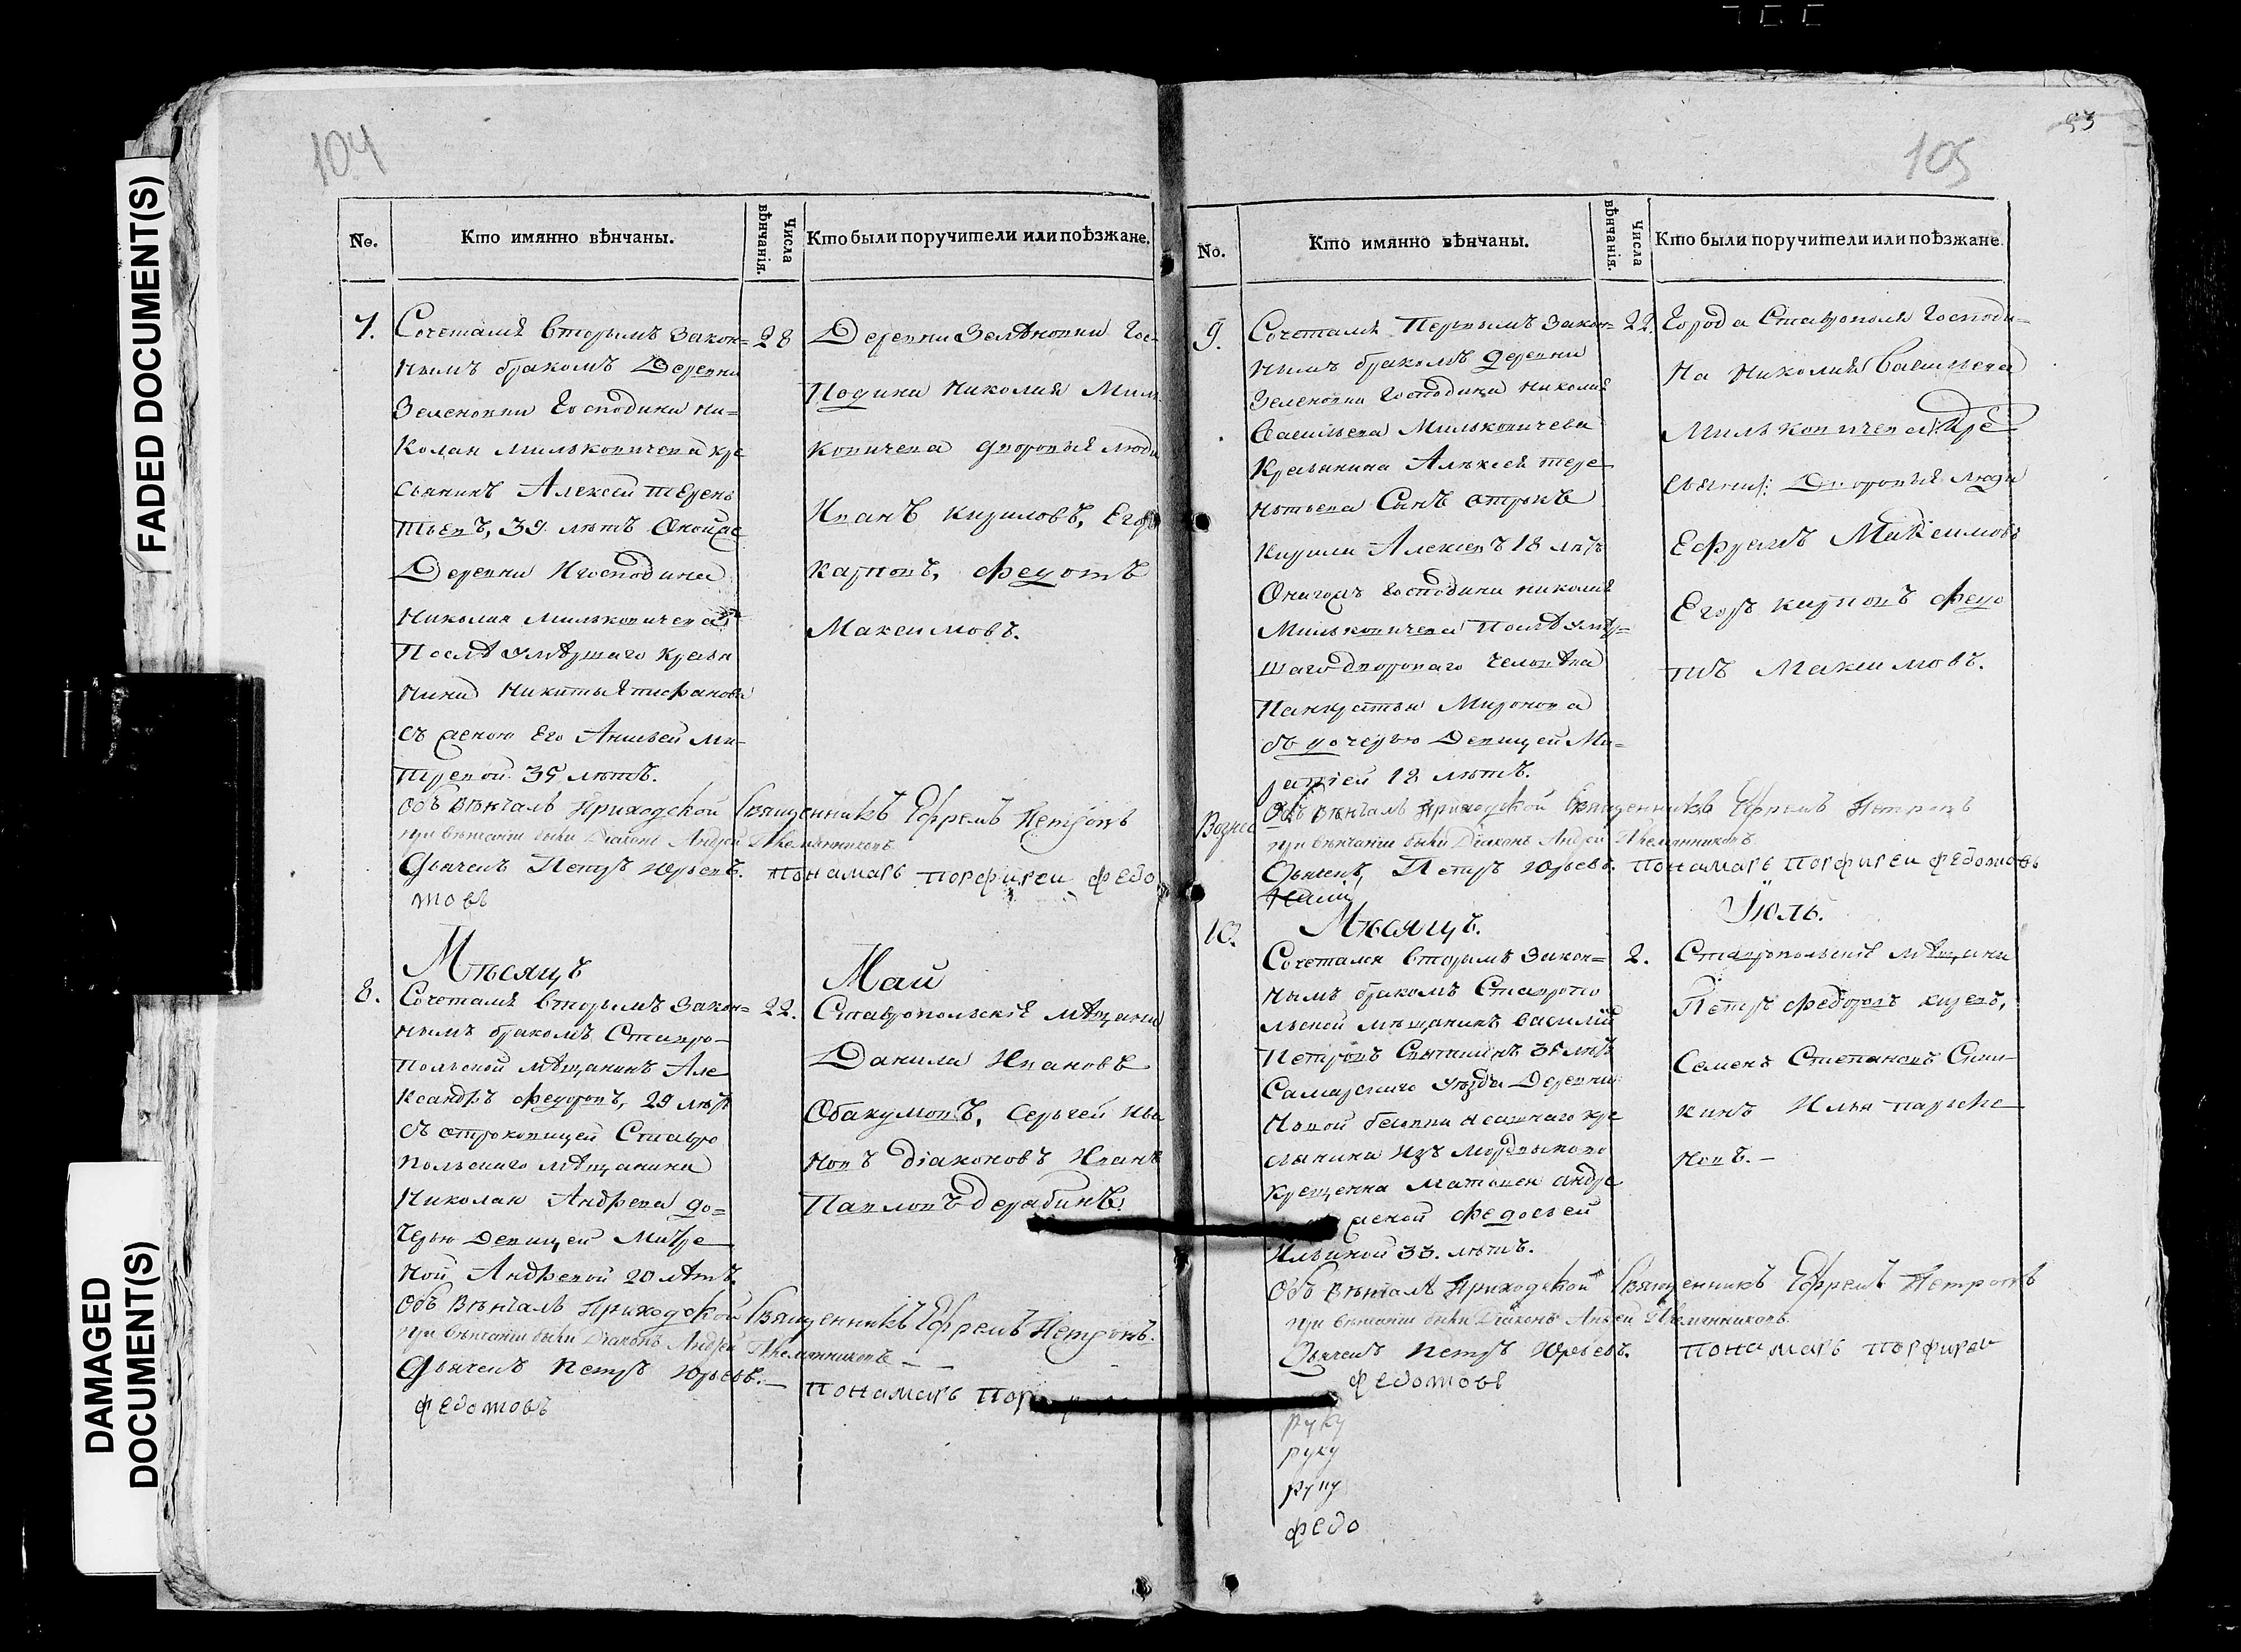 FADED DOCUMENT(S)
DAMAGED
DOCUMENT(S)
104
No.
Кто имянно вѣнчаны.
Числа
вѣнчанія.
Кто были поручители или поѣзжане.
7.
Сочеталя вторымъ закон=
нымъ бракомъ Деревни
Зеленовки Господина Ни=
колая Мильковичева кре
сьянинъ Алексей терень
тьевъ, 39. лѣтъ
Деревни Господина
Николая Мильковичева
После умѣршаго кресьн
нина Никиты
съ женою Его Ми-
тревой 35 лѣтъ.
28
Деревни Зелѣновки Гос-
подина Николая Миль
ковичева дворовыя люди
Иванъ кириловъ, Егоръ
карповъ, федотъ
Максимовъ.
Объ вѣнчалъ Приходской Священникъ Ефремъ Петровъ
при вѣнчаніи были Діаконъ Андрей Племянниковъ
Дьячекъ Петръ Юрьевъ. пономарь порфиреи федо
товъ
Мѣсяцъ
Май
8.
Сочеталя вторымъ закон=
нымъ бракомъ Ставро-
польской мѣщанинъ Але
ксандръ федоровъ, 29 лѣтъ
съ отроковицей Ставро
польскаго мѣщанина
Николая Андрева до=
черью Девицей Матре
ной Андревой 20 лѣтъ.
22.
Ставропольскіе мѣщани
Данила Ивановъ
Обакумовъ, Сергей Ива
новъ діаконовъ Иванъ
Павловъ дерябинъ
Объ вѣнчалъ Приходской Священникъ Ефремъ Петровъ.
при вѣнчаніи были Діаконъ Андрей Племянниковъ
Дьячекъ Петръ Юрьевъ.
пономарь
федотовъ
53
105
No.
Кто имянно вѣнчаны.
Числа
вѣнчанія.
Кто были поручители или поѣзжане.
9.
Сочеталя Первымъ закон=
нымъ бракомъ деревни
Зеленовки Господина Николая
Васильева Мильковичева
Кресьянина Алѣксея тере
нтьева Сынъ отрокъ
Кирила Алексевъ 18 лѣтъ
Оногожъ Господина николая
Мильковичева Послѣ умѣр=
шаго дворового человѣка
Панкратья Миронова
съ дочерью Девицей Ма=
18 лѣтъ.
22.
Города Ставрополя Господи=
на Николая Васильева
Мильковичева кре
Дворовыя люди
Ефремъ Максимовъ
Егоръ карповъ федо
тъ Максимовъ.
Объ вѣнчалъ Приходской Священникъ Ефремъ Петровъ
при вѣнчаніи были Діаконъ Андрей Племянниковъ
Дьячекъ, Петръ Юрьевъ. пономарь порфиреи федотовъ
Мѣсяцъ.
Іюль.
10.
Сочеталя вторымъ закон=
нымъ бракомъ Ставропо
льской мѣщанинъ Василій
Петровъ лѣтъ
Самарскаго уѣзда Деревни
Новой
сьянина Изъ
крещенна андре
женой федосьей
Ильиной 33. лѣтъ.
2.
Ставропольскіе мѣщани
Петръ федоровъ
Семенъ Степановъ
кинъ Илья
новъ.-
Объ вѣнчалъ Приходской Священникъ Ефремъ Петровъ
при вѣнчаніи были Діаконъ Андрей Племянниковъ.
Дьячекъ Петръ Юрьевъ. пономарь порфиреи
федотовъ
руку
руку
руку
федо